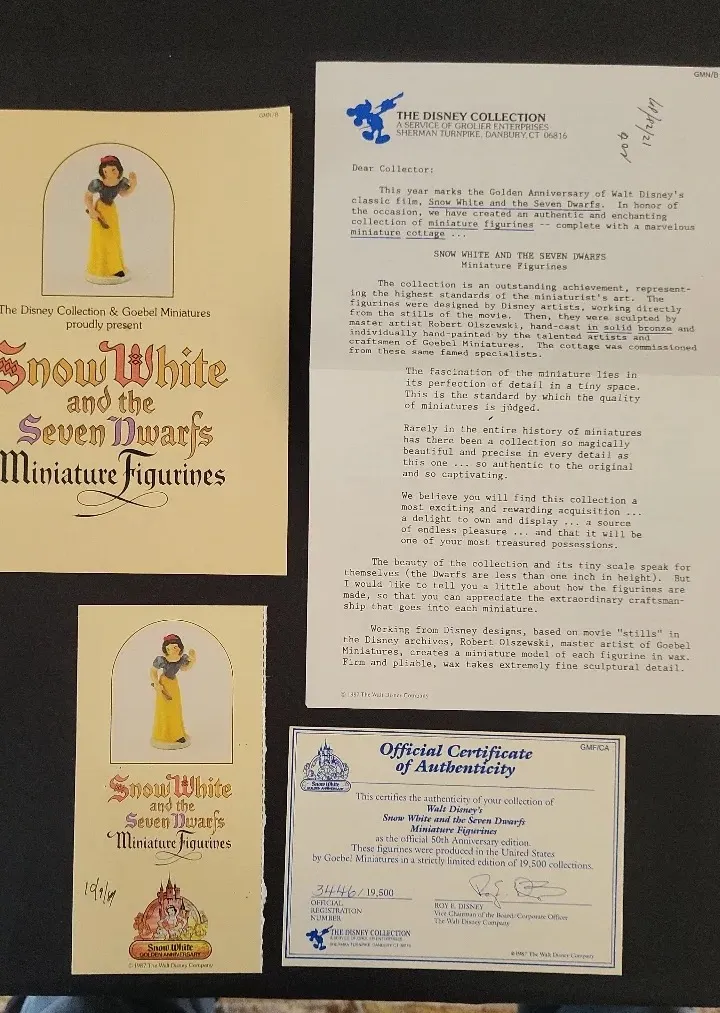 GMN/B
The Disney Collection & Goebel Miniatures
proudly present
Snow White
and the
Seven Dwarfs
Miniature Figurines
GMN/B
THE DISNEY COLLECTION
A SERVICE OF GROLIER ENTERPRISES
SHERMAN TURNPIKE, DANBURY, CT 06816
Dear Collector:
This year marks the Golden Anniversary of Walt Disney's
classic film, Snow White and the Seven Dwarfs. In honor of
the occasion, we have created an authentic and enchanting
collection of miniature figurines -- complete with a marvelous
miniature cottage ...
SNOW WHITE AND THE SEVEN DWARFS
Miniature Figurines
The collection is an outstanding achievement, represent-
ing the highest standards of the miniaturist's art. The
figurines were designed by Disney artists, working directly
from the stills of the movie. Then, they were sculpted by
master artist Robert Olszewski, hand-cast in solid bronze and
individually hand-painted by the talented artists and
craftsmen of Goebel Miniatures. The cottage was commissioned
from these same famed specialists.
The fascination of the miniature lies in
its perfection of detail in a tiny space.
This is the standard by which the quality
of miniatures is judged.
Rarely in the entire history of miniatures
has there been a collection so magically
beautiful and precise in every detail as
this one ... so authentic to the original
and so captivating.
We believe you will find this collection a
most exciting and rewarding acquisition ...
a delight to own and display ... a source
of endless pleasure ... and that it will be
one of your most treasured possessions.
The beauty of the collection and its tiny scale speak for
themselves (the Dwarfs are less than one inch in height). But
I would like to tell you a little about how the figurines are
made, so that you can appreciate the extraordinary craftsman-
ship that goes into each miniature.
Working from Disney designs, based on movie "stills" in
the Disney archives, Robert Olszewski, master artist of Goebel
Miniatures, creates a miniature model of each figurine in wax.
Firm and pliable, wax takes extremely fine sculptural detail.
© 1987 The Walt Disney Company
Snow White
and the
Seven Dwarfs
Miniature Figurines
Snow White
GOLDEN ANNIVERSARY
© 1987 The Walt Disney Company
GMF/CA
Official Certificate
of Authenticity
Snow White
GOLDEN ANNIVERSARY
This certifies the authenticity of your collection of
Walt Disney's
Snow White and the Seven Dwarfs
Miniature Figurines
as the official 50th Anniversary edition.
These figurines were produced in the United States
by Goebel Miniatures in a strictly limited edition of 19,500 collections.
3446/19,500
OFFICIAL
REGISTRATION
NUMBER
ROY E. DISNEY
Vice Chairman of the Board/Corporate Officer
The Walt Disney Company
THE DISNEY COLLECTION
A SERVICE OF GROLIER ENTERPRISES
SHERMAN TURNPIKE, DANBURY, CT 06816
©1987 The Walt Disney Company